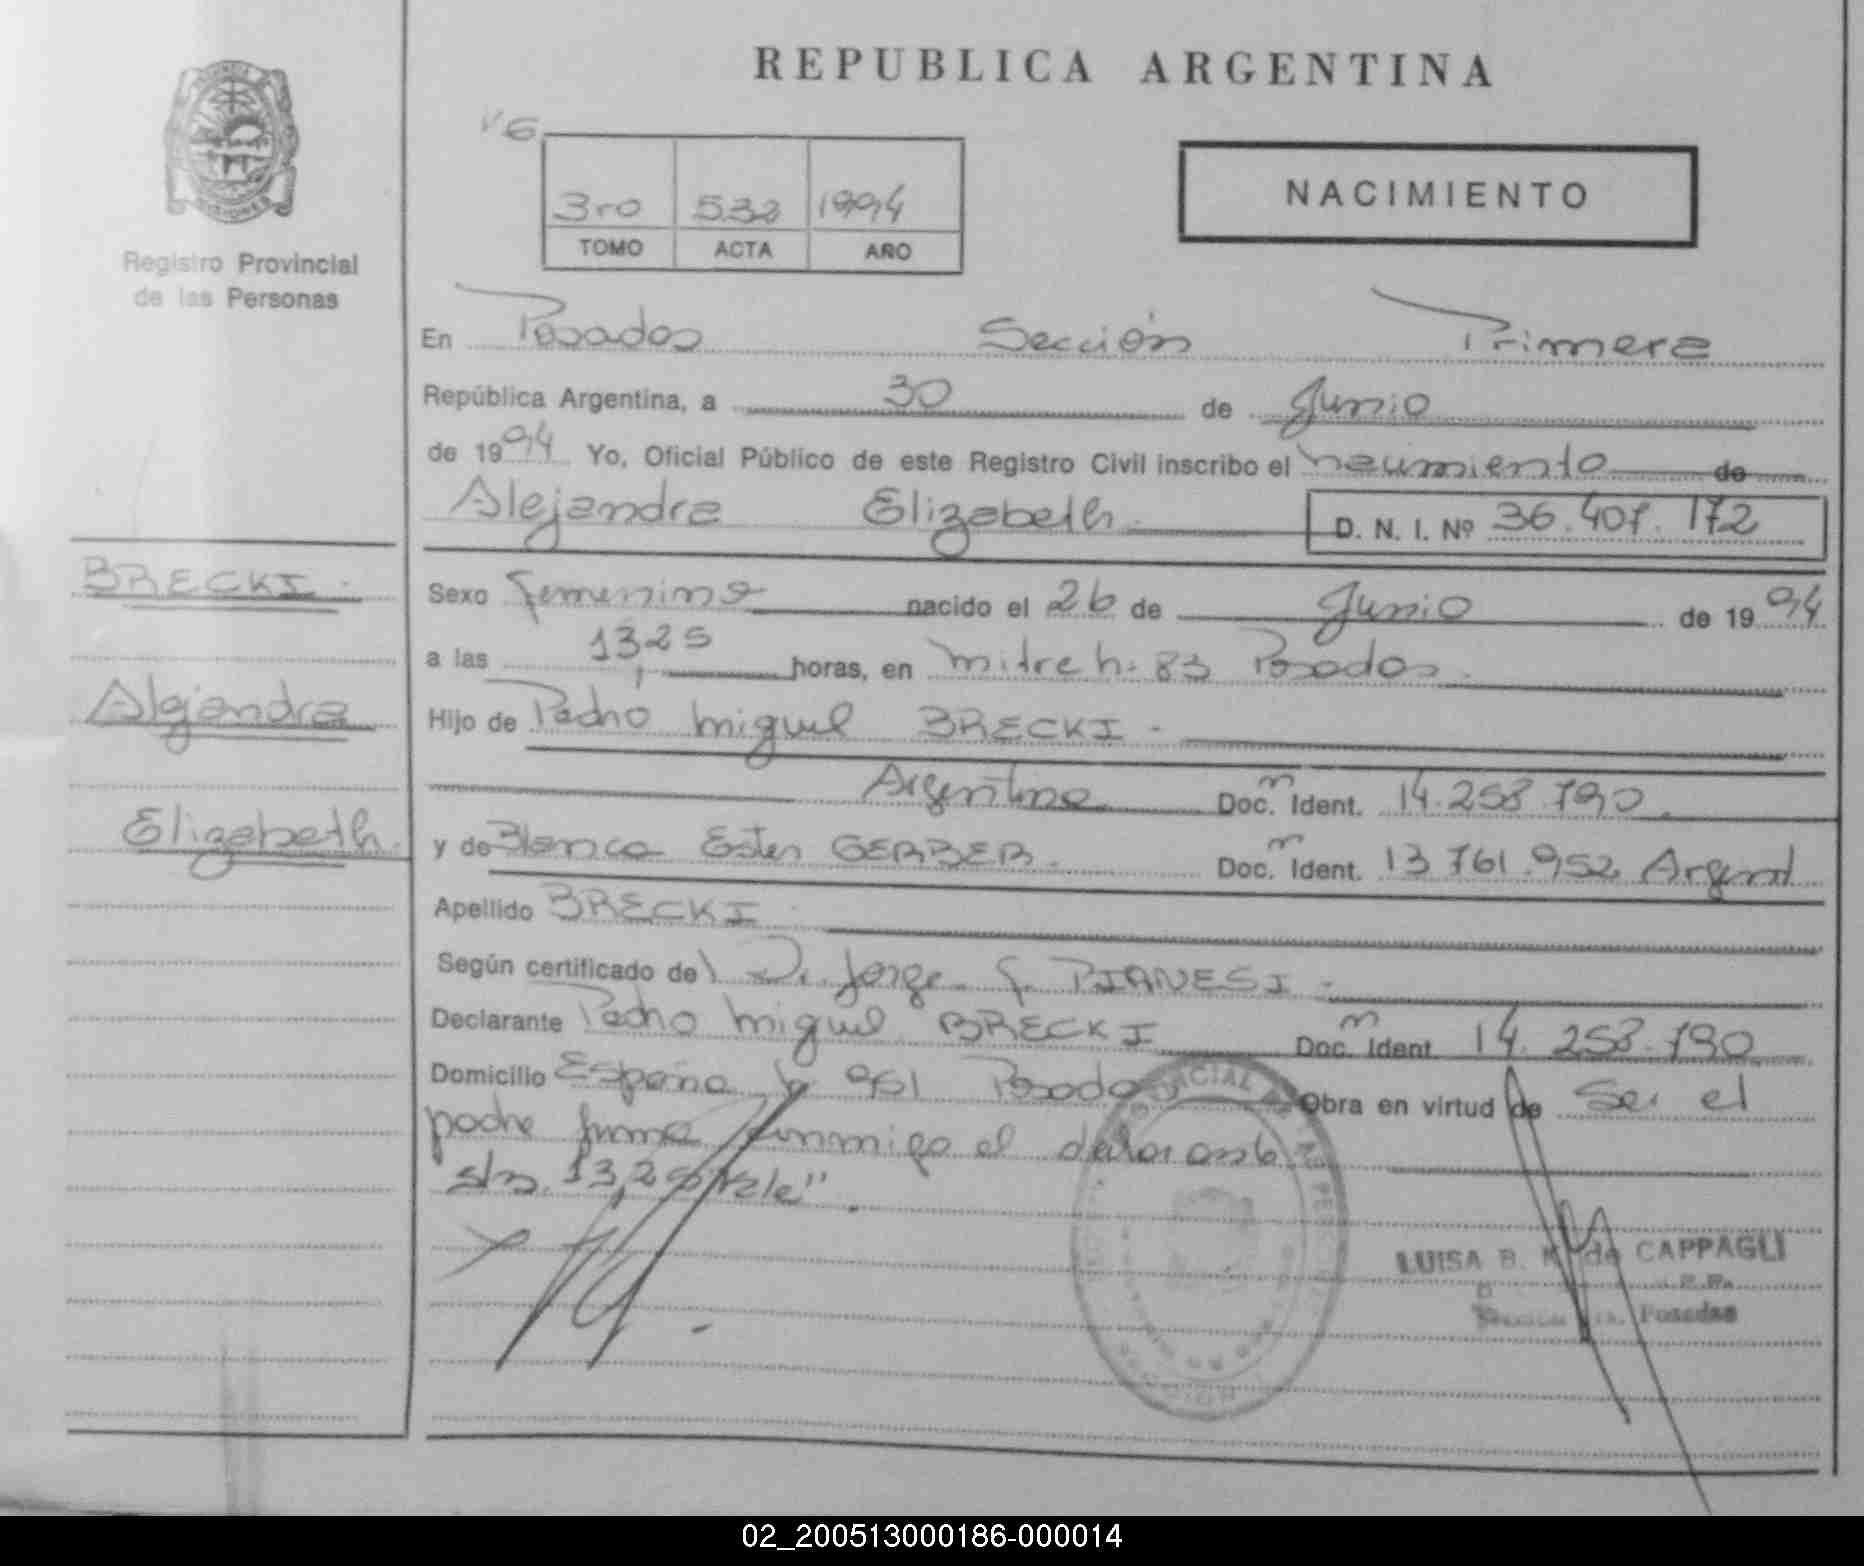 REPUBLICA ARGENTINA
VG
3ro 532 1994
TOMO ACTA AÑO
NACIMIENTO
MISIONES
Registro Provincial
de las Personas
En Posadas Sección Primera
República Argentina, a 30 de Junio
de 1994 Yo, Oficial Público de este Registro Civil inscribo el nacimiento de
Alejandra Elizabeth D. N. I. Nº 36.407.172
BRECKI
Alejandra
Elizabeth
Sexo femenino nacido el 26 de Junio de 1994
a las 13,25 horas, en mitre n. 83 Posadas
Hijo de Pedro Miguel BRECKI
Argentino Doc. m Ident. 14.258.790
y de Blanca Ester GERBER Doc. m Ident. 13.761.952 Argent
Apellido BRECKI
Según certificado de Dr. Jorge PIANESI
Declarante Pedro Miguel BRECKI Doc. m Ident. 14.258.790
Domicilio España 961 Posadas Obra en virtud de Ser el
padre firma conmigo el declarante
s/r. 13,25 Vale"
LUISA B. K. de CAPPAGLI
Posadas
02_200513000186-000014